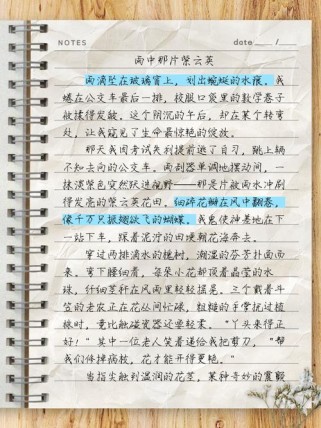 NOTES date / /
雨中那片紫云英
雨滴坠在玻璃窗上，划出蜿蜒的水痕。我
蜷在公交车最后一排，校服口袋里的数学卷子
被揉得发皱。这个阴沉的午后，却在某个转弯
处，让我窥见了生命最惊艳的绽放。
那天我因考试失利提前逃了自习，跳上辆
不知去向的公交车。雨刮器单调地摆动间，一
抹淡紫色突然跃进视野——那是片被雨水冲刷
得发亮的紫云英花田。细碎花瓣在风中翻卷，
像千万只振翅欲飞的蝴蝶。我鬼使神差地在下
一站下车，踩着泥泞的田埂朝花海奔去。
穿过两排滴水的槐树，潮湿的芬芳扑面而
来。弯下腰细看，每朵小花都顶着晶莹的水
珠，纤细茎秆在风雨里轻轻摇晃。三个戴着斗
笠的老农正在花丛间忙碌，粗糙的手掌抚过植
株时，竟比触碰瓷器还要轻柔。“丫头来得正
好！”其中一位老人笑着递给我把剪刀，“帮
我们修掉病枝，花才能开得更艳。”
当指尖触到温润的花茎，某种奇妙的震颤